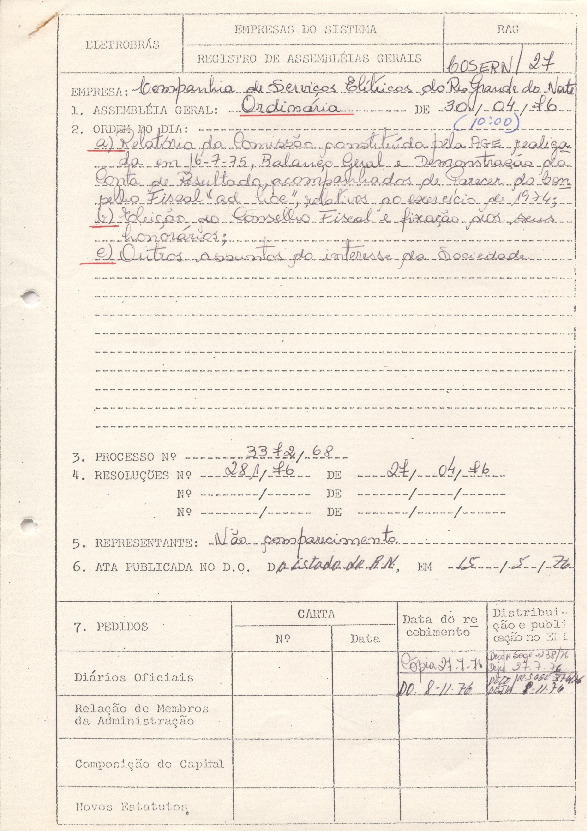 ELETROBRÁS
EMPRESAS DO SISTEMA
RAG
REGISTRO DE ASSEMBLÉIAS GERAIS
COSERN/27
EMPRESA: Companhia de Serviços Elétricos do Rio Grande do Norte
1. ASSEMBLÉIA GERAL: Ordinária DE 30/04/76
(10:00)
2. ORDEM DO DIA:
a) Relatório da Comissão constituída pela AGE realiza-
da em 16-7-75, Balanço Geral e Demonstração da
Conta de Resultado, acompanhados de Parecer do Con-
selho Fiscal "ad hoc", relativos ao exercício de 1974;
b) Eleição do Conselho Fiscal e fixação dos seus
honorários;
c) Outros assuntos do interesse da Sociedade
3. PROCESSO Nº 3372/68
4. RESOLUÇÕES Nº 281/76 DE 27/04/76
Nº / DE / /
Nº / DE / /
5. REPRESENTANTE: Não comparecimento
6. ATA PUBLICADA NO D.O. Do Estado do R.N. EM 15/5/76
7. PEDIDOS
CARTA
Nº
Data
Data do re
cebimento
Distribui-
ção e publi
cação no
Diários Oficiais
Cópia 27.7.76
27.7.76
DO. 8-11-76
8-11-76
Relação de Membros
da Administração
Composição do Capital
Novos Estatutos